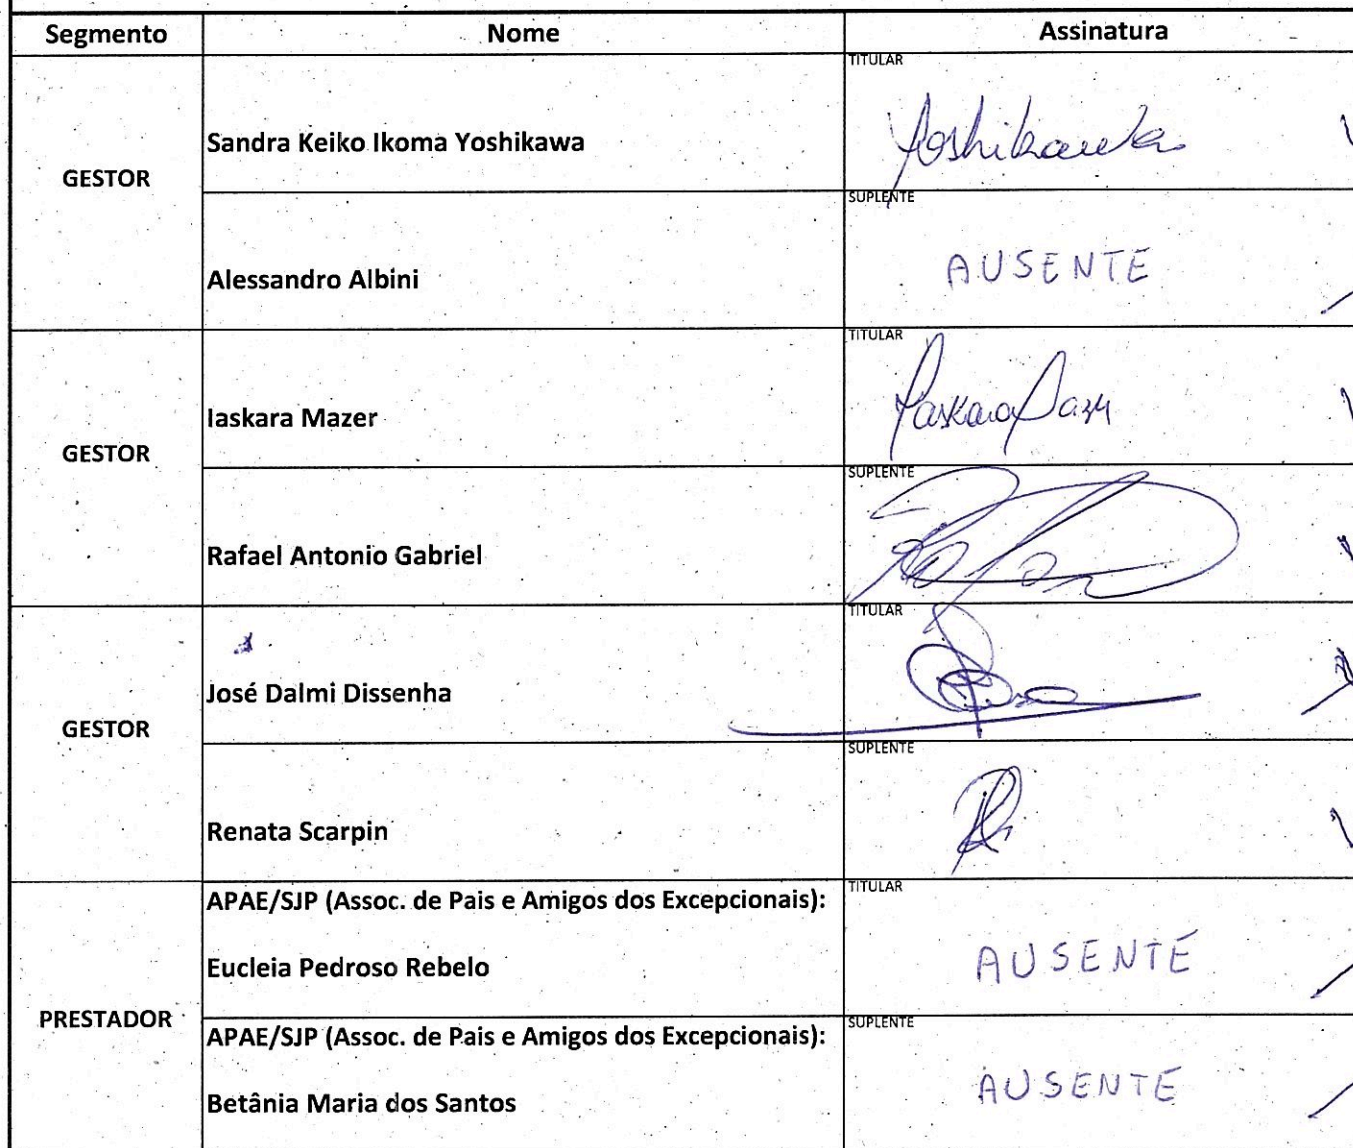 Segmento Nome Assinatura
GESTOR
Sandra Keiko Ikoma Yoshikawa
TITULAR
Yoshikawa
Alessandro Albini
SUPLENTE
AUSENTE
GESTOR
Iaskara Mazer
TITULAR
Iaskara
Rafael Antonio Gabriel
SUPLENTE
GESTOR
José Dalmi Dissenha
TITULAR
Renata Scarpin
SUPLENTE
PRESTADOR
APAE/SJP (Assoc. de Pais e Amigos dos Excepcionais):
Eucleia Pedroso Rebelo
TITULAR
AUSENTE
APAE/SJP (Assoc. de Pais e Amigos dos Excepcionais):
Betânia Maria dos Santos
SUPLENTE
AUSENTE